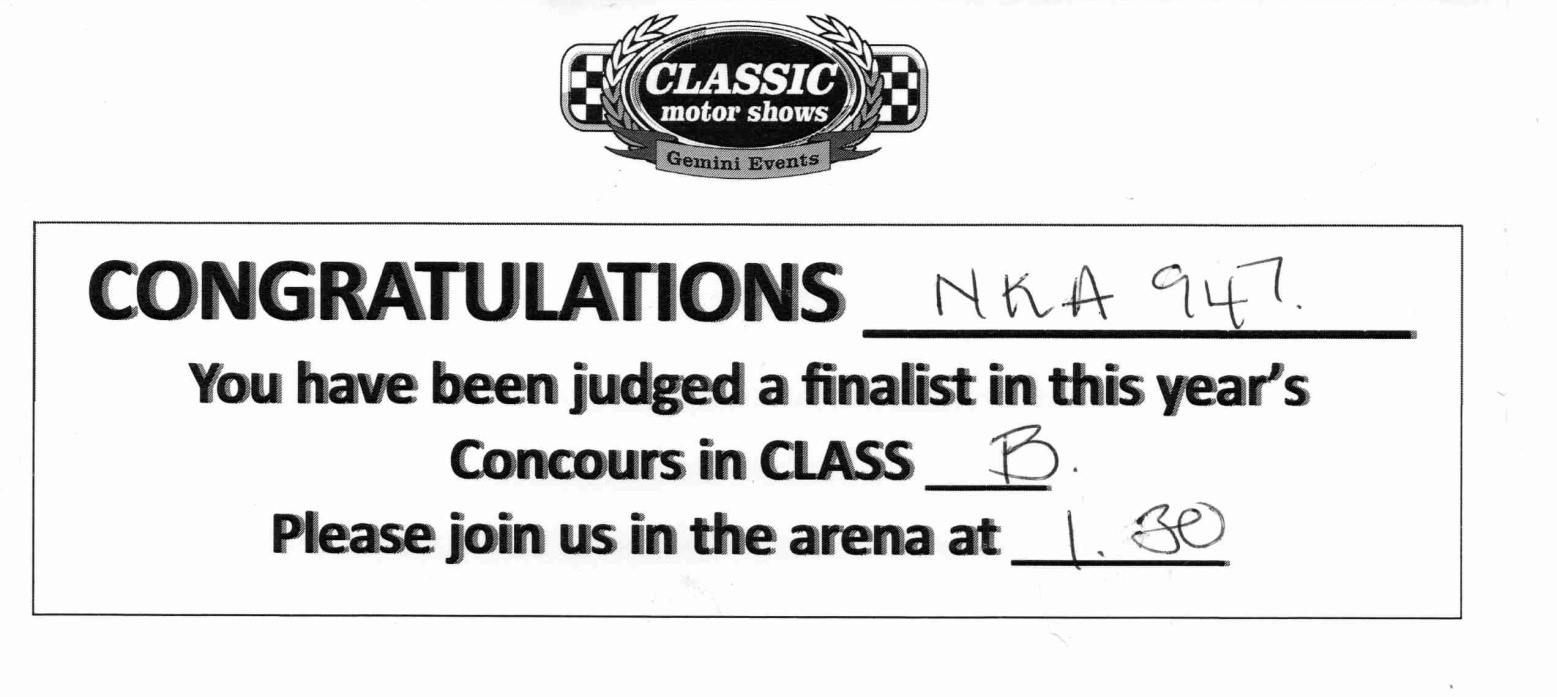 CLASSIC
motor shows
Gemini Events
CONGRATULATIONS NKA 947.
You have been judged a finalist in this year's
Concours in CLASS B.
Please join us in the arena at 1.30